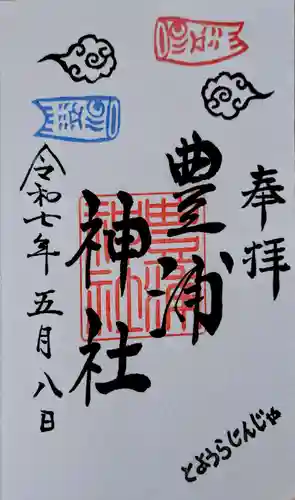 奉拝
豊浦
神社
令和七年五月八日
とようらじんじゃ